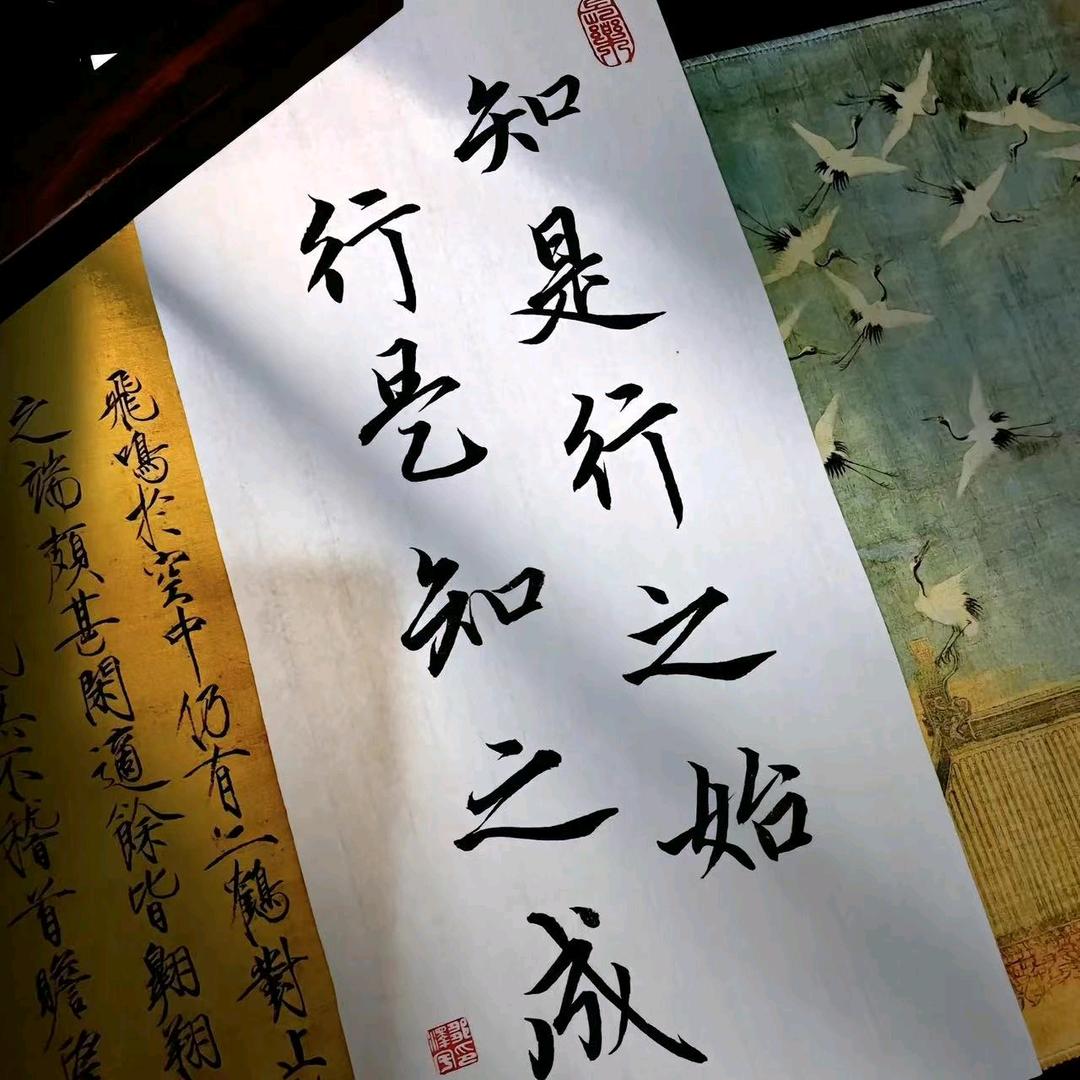 知是行之始
行是知之成
飛鳴於空中仍有二鶴對止
之端頗甚閑適餘皆翱翔
民無不稽首瞻望